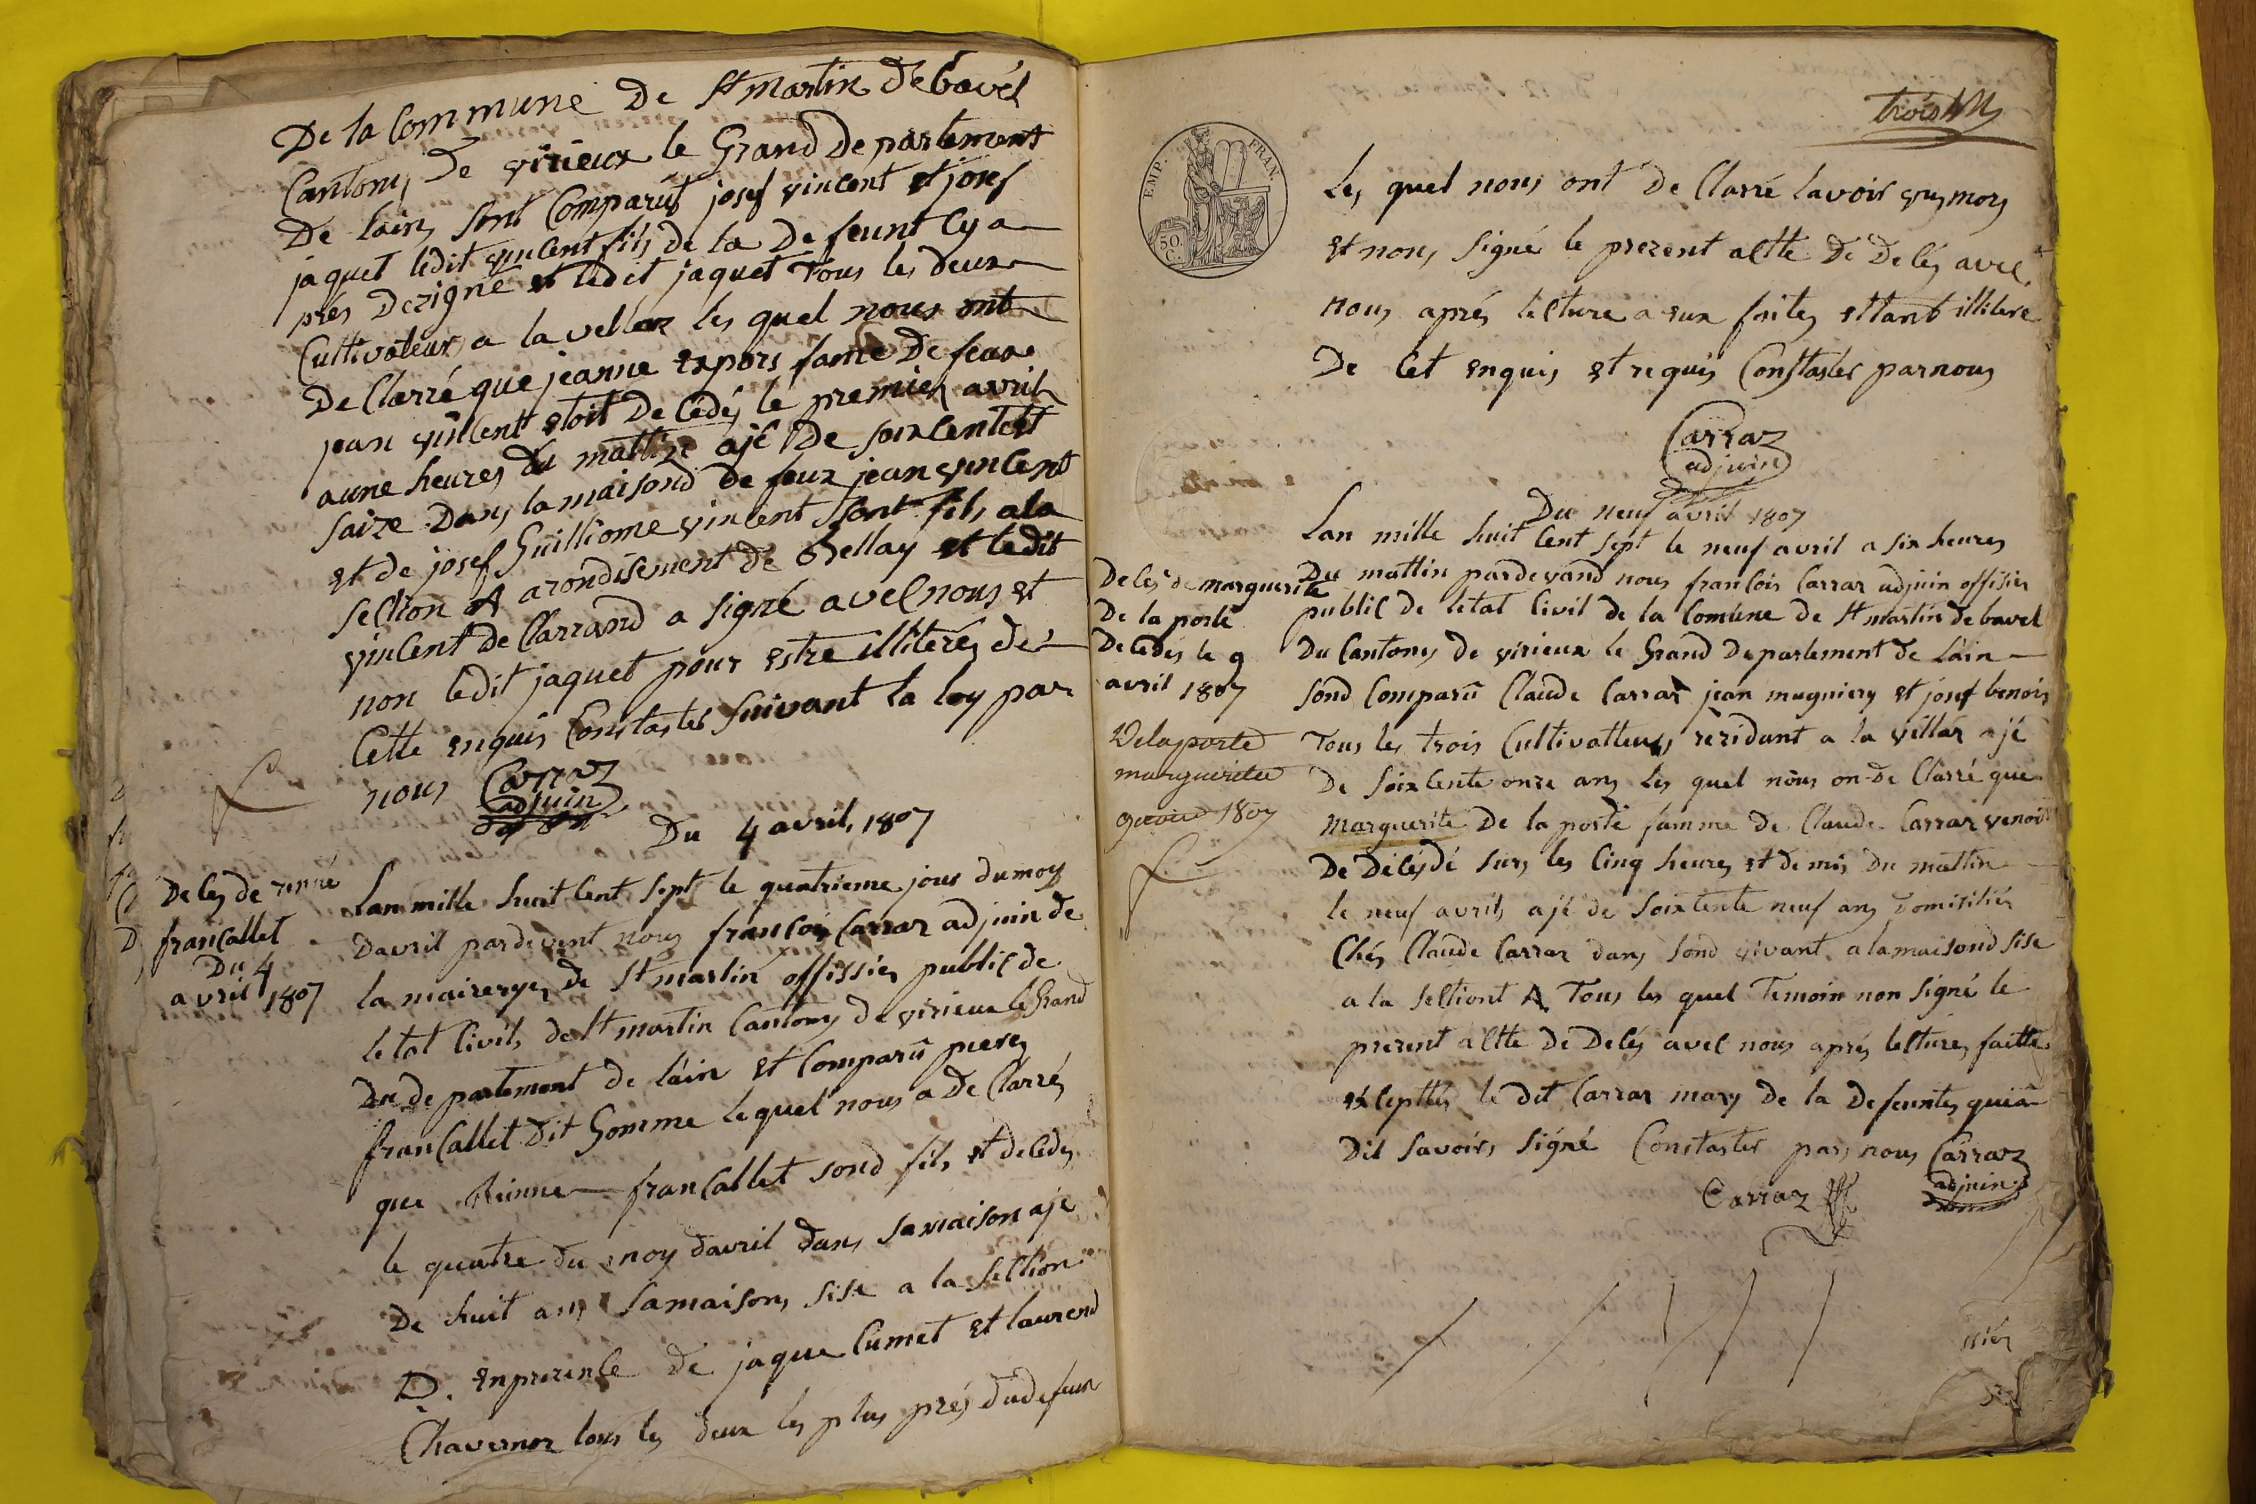 De la Commune De St martin De bavel
Cantons De virieux le Grand De partement
De lain, sont Comparût josef vincent et josef
jaquet ledit vincent fils de la De feunt Cy a
prés Dezigné et ledit jaquet Tous les deux
Cultivateur a la vellar les quel nous ont
De Clarré que jeanne Expors fame De feux
jean vincent etoit De Cédéz le premier avril
a une heures du mattin ajé De soixcentest
saize Dans la maisond de feux jean vincent
et de josef Guilliome vincent sont fils a la
section A arondisement de Bellay et ledit
vincent de Clarrand a signé avec nous et
non ledit jaquet pour estre illiterés de
Cette enquis Constater suivant la loy par
nous Carraz
adjuin
Du 4 avril, 1807
De Ces de renné
franCallet
Du 4
avril 1807
Lan mille huit Cent sept le quatrieme jour du moy
Davril pardevent nous françois Carrar adjuin de
la mairerye de St martin offissier public de
letat Civil, de St martin Cantons de virieux le Grand
Du de partement de lain et Comparû piere
franCallet Dit Gomme lequel nous a De Clarré
que Rinne franCallet sond fils et decedes
le quatre du moy davril dans samaison aje
De huit ans samaison, sise a la section
D. enprezence de jaque Cumet et laurend
Chavernoz tous les deux les plus prés dudefeux
trois
EMP. FRAN.
50 C.
Les quel nous ont de Clarré savoir
et nous signé le prezent actte De Delés avec
nous aprés lecture a eux faites ettant illiteré
De Cet enquis et requis Constater par nous
Carraz
adjuin
Du neuf avril 1807
Lan mille huit Cent sept le neuf avril a six heures
De Cés de marguerite
De la porte
De Cedés le 9
avril 1807
Delaporte
marguerite
9 avril 1807
Du mattin pardevand nous francois Carrar adjuin offisier
public de letat Civil de la Comûne de St martin de bavel
Du Cantons de virieux le Grand Departement de Lain
sond Comparû Claude Carrar jean mugniery et josef benois
Tous les trois Cultivatteurs rezidant a la villar ajé
De soixcente onze ans les quel nous on De Clarré que
Marguerite De la porte famme de Claude Carrar venoit
De Décédé surs les Cinq heures et demis Du mattin
le neuf avril, ajé de soixtente neuf ans Domisiliér
Chés Claude Carrar dans sond vivant a la maisond sise
a la sectiont A Tous les quel Temoin non signé le
prezent actte De Delés avec nous aprés lecture, faitte
Excepttés le dit Carrar mary De la Defeuntes qui a
Dit Savoirs signé Constater par nous Carraz
adjuin
Carraz